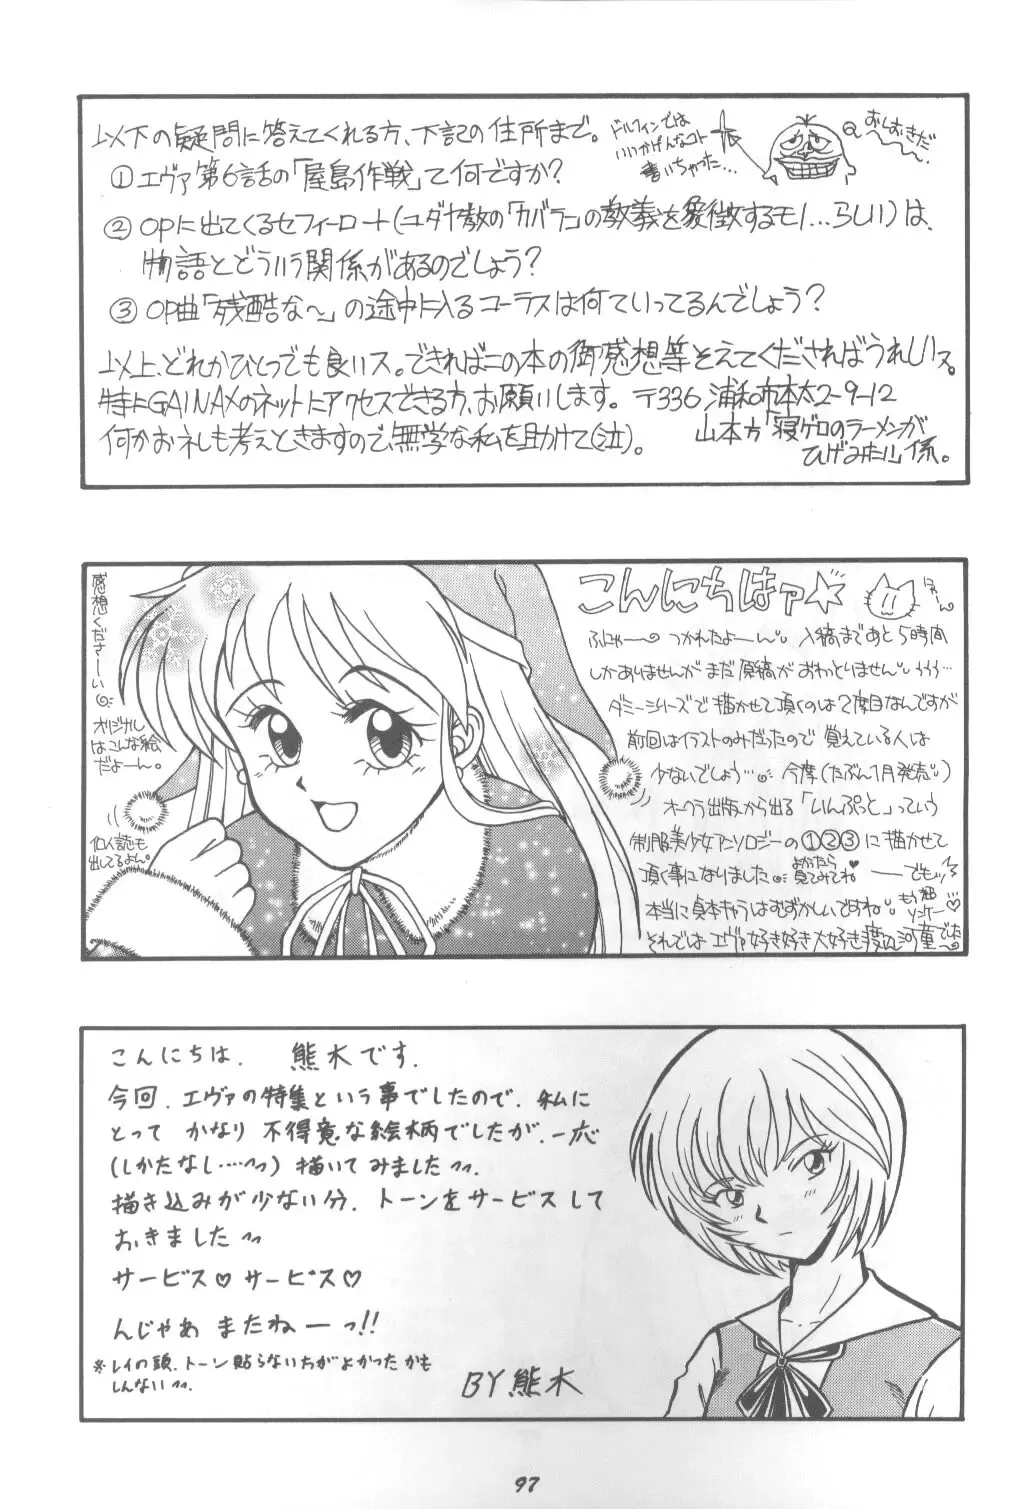 以下の疑問に答えてくれる方、下記の住所まで。
①エヴァ第6話の「屋島作戦」て何ですか?
②OPに出てくるセフィーロート(ユダヤ教の「カバラ」の教義を象徴するモノ…らしい)は、
物語とどういう関係があるのでしょう?
③OP曲「残酷な〜」の途中に入るコーラスは何ていってるんでしょう?
以上、どれかひとつでも良いス。できればこの本の御感想等そえてくださればうれしいス。
特にGAINAXのネットにアクセスできる方、お願いします。〒336 浦和市本太2-9-12
何かお礼も考えときますので、無学な私を助けて(泣)。 山本方「寝ゲロのラーメンが
ひげみたい」係。
ドルフィンでは
いいかげんなコト
書いちゃった…
おしおきだ〜
感想くださーい
オリジナル
はこんな絵
だよーん。
個人誌も
出してるよん。
こんにちはァ☆
ふにゃー つかれたよーん。 入稿まであと5時間
しかありませんがまだ原稿がおわっとりません。ううう…
ダミーシリーズで描かせて頂くのは2度目なんですが
前回はイラストのみだったので覚えている人は
少ないでしょう… 今度(たぶん1月発売)
オークラ出版から出る「いんぷっと」っていう
制服美少女アンソロジーの①②③に描かせて
頂く事になりました よかったら見てみてね♥ ーでもッ
本当に貞本キャラはむずかしいですね
それでは エヴァ好き好き大好き 河童でした
こんにちは. 熊木です.
今回. エヴァの特集という事でしたので. 私に
とって かなり 不得意な絵柄でしたが. 一応
(しかたなし…^^) 描いてみました^^.
描き込みが少ない分. トーンをサービスして
おきました^^
サービス♡サービス♡
んじゃあ またねーっ!!
※レイの頭. トーン貼らない方がよかったかも
しんない^^.
BY熊木
97